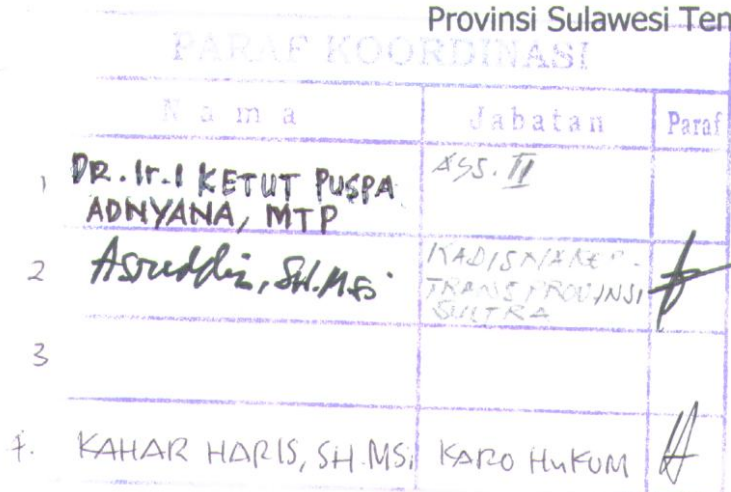 Provinsi Sulawesi Ten
PARAF KOORDINASI
Nama Jabatan Paraf
1 DR. Ir. I KETUT PUSPA ADNYANA, MTP ASS. II
2 Asruddin, SH.MSi KADISNAKER-TRANS PROVINSI SULTRA
3
4. KAHAR HARIS, SH.MSi KARO HUKUM